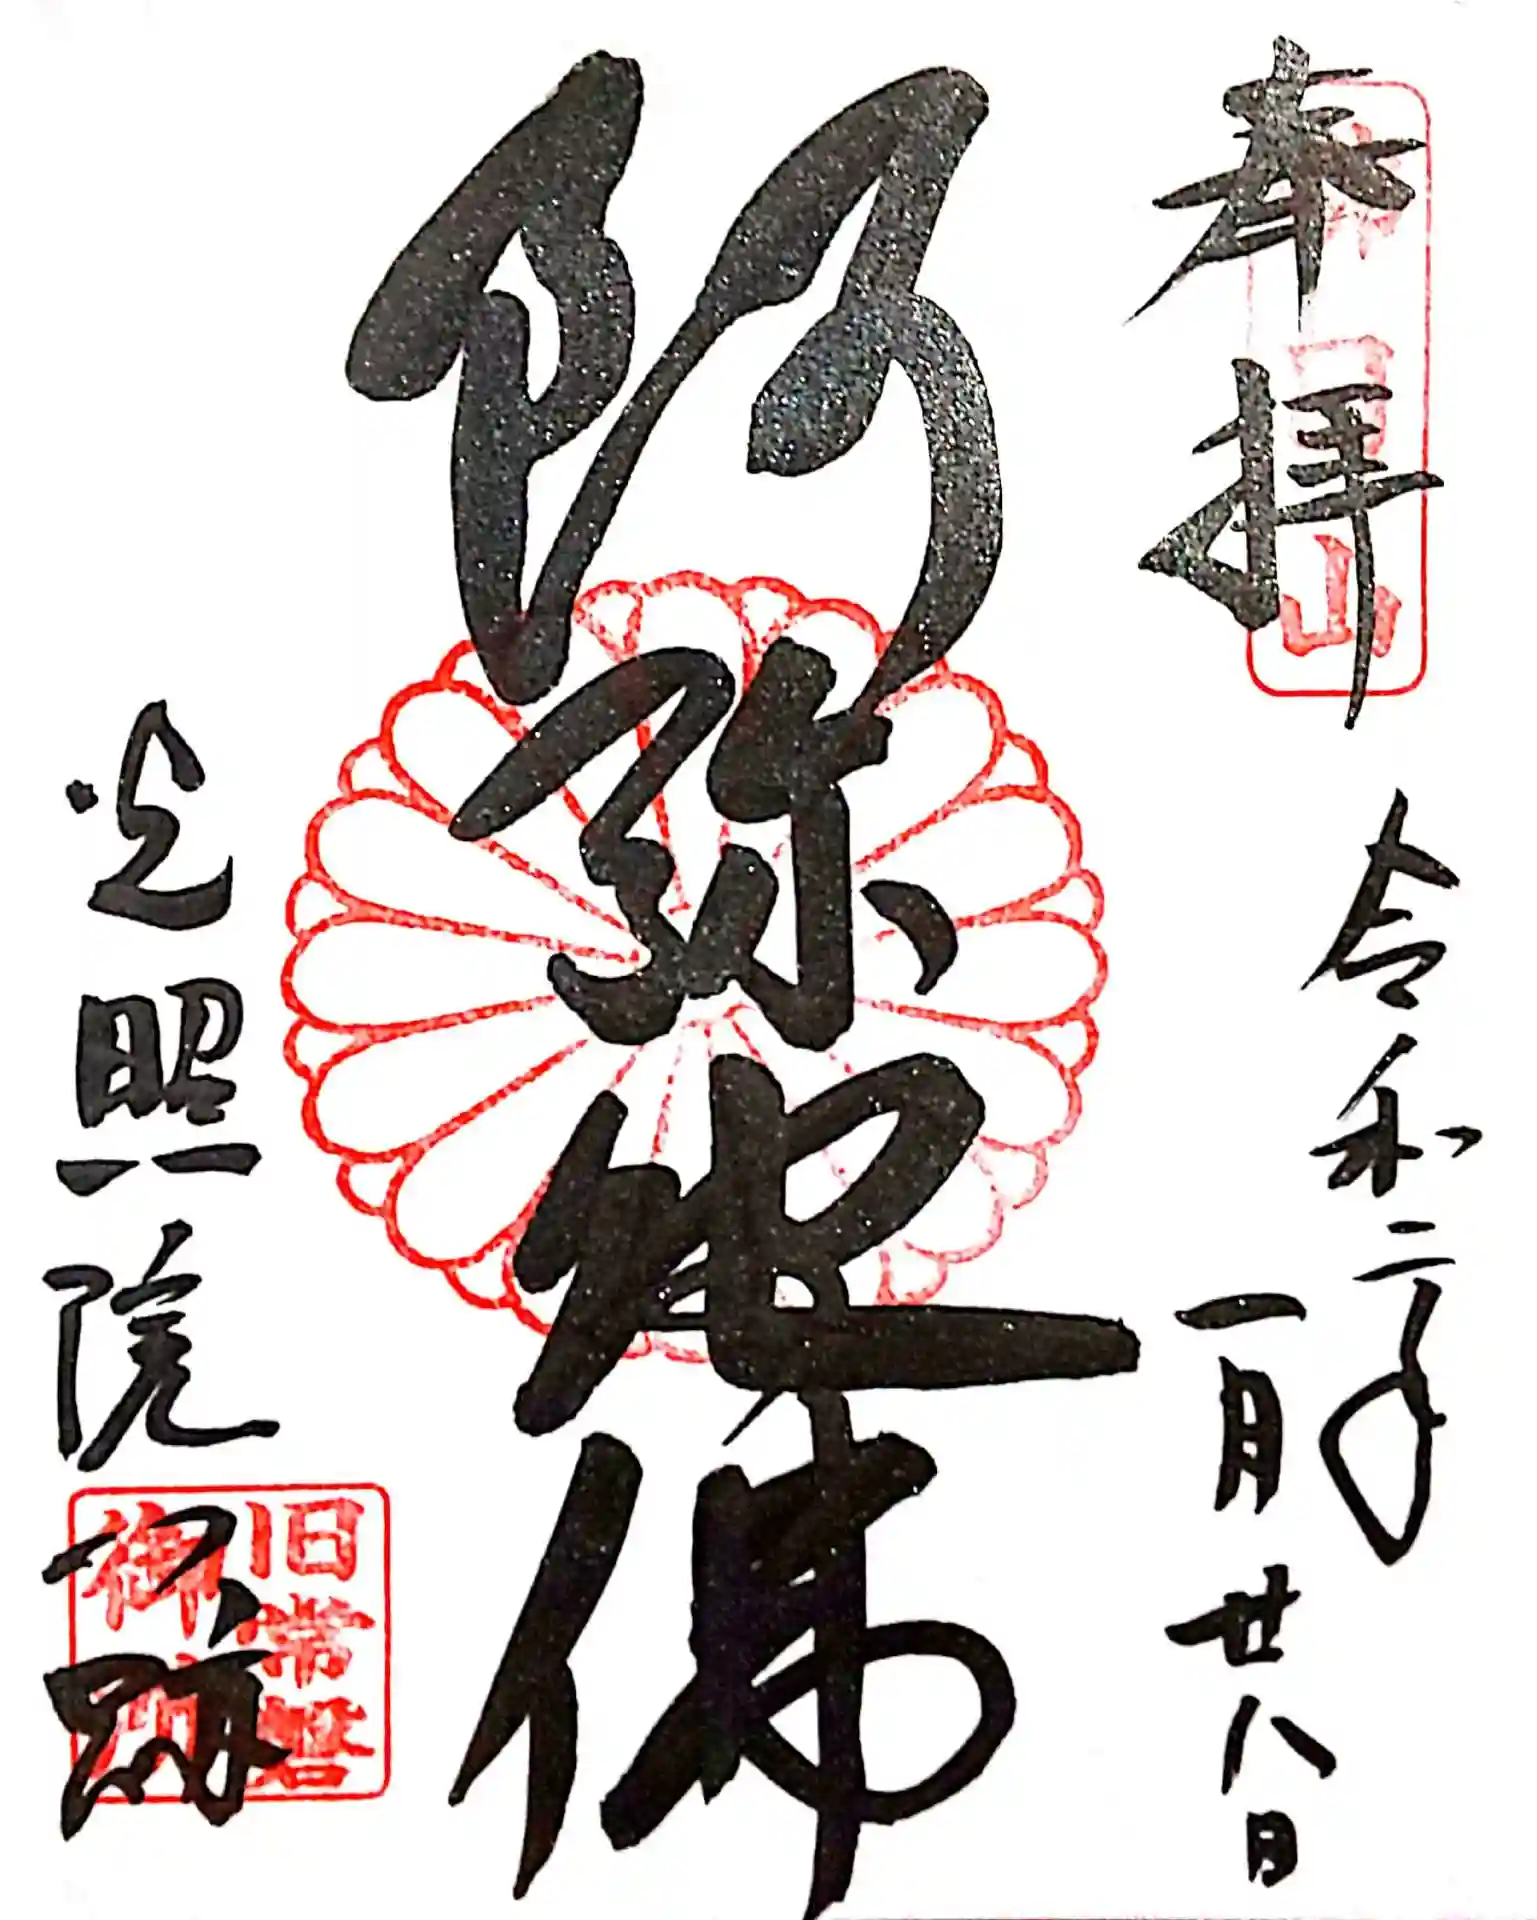 奉拝
令和二年
一月廿八日
阿弥陀佛
光照院
御跡
旧常磐
御
山